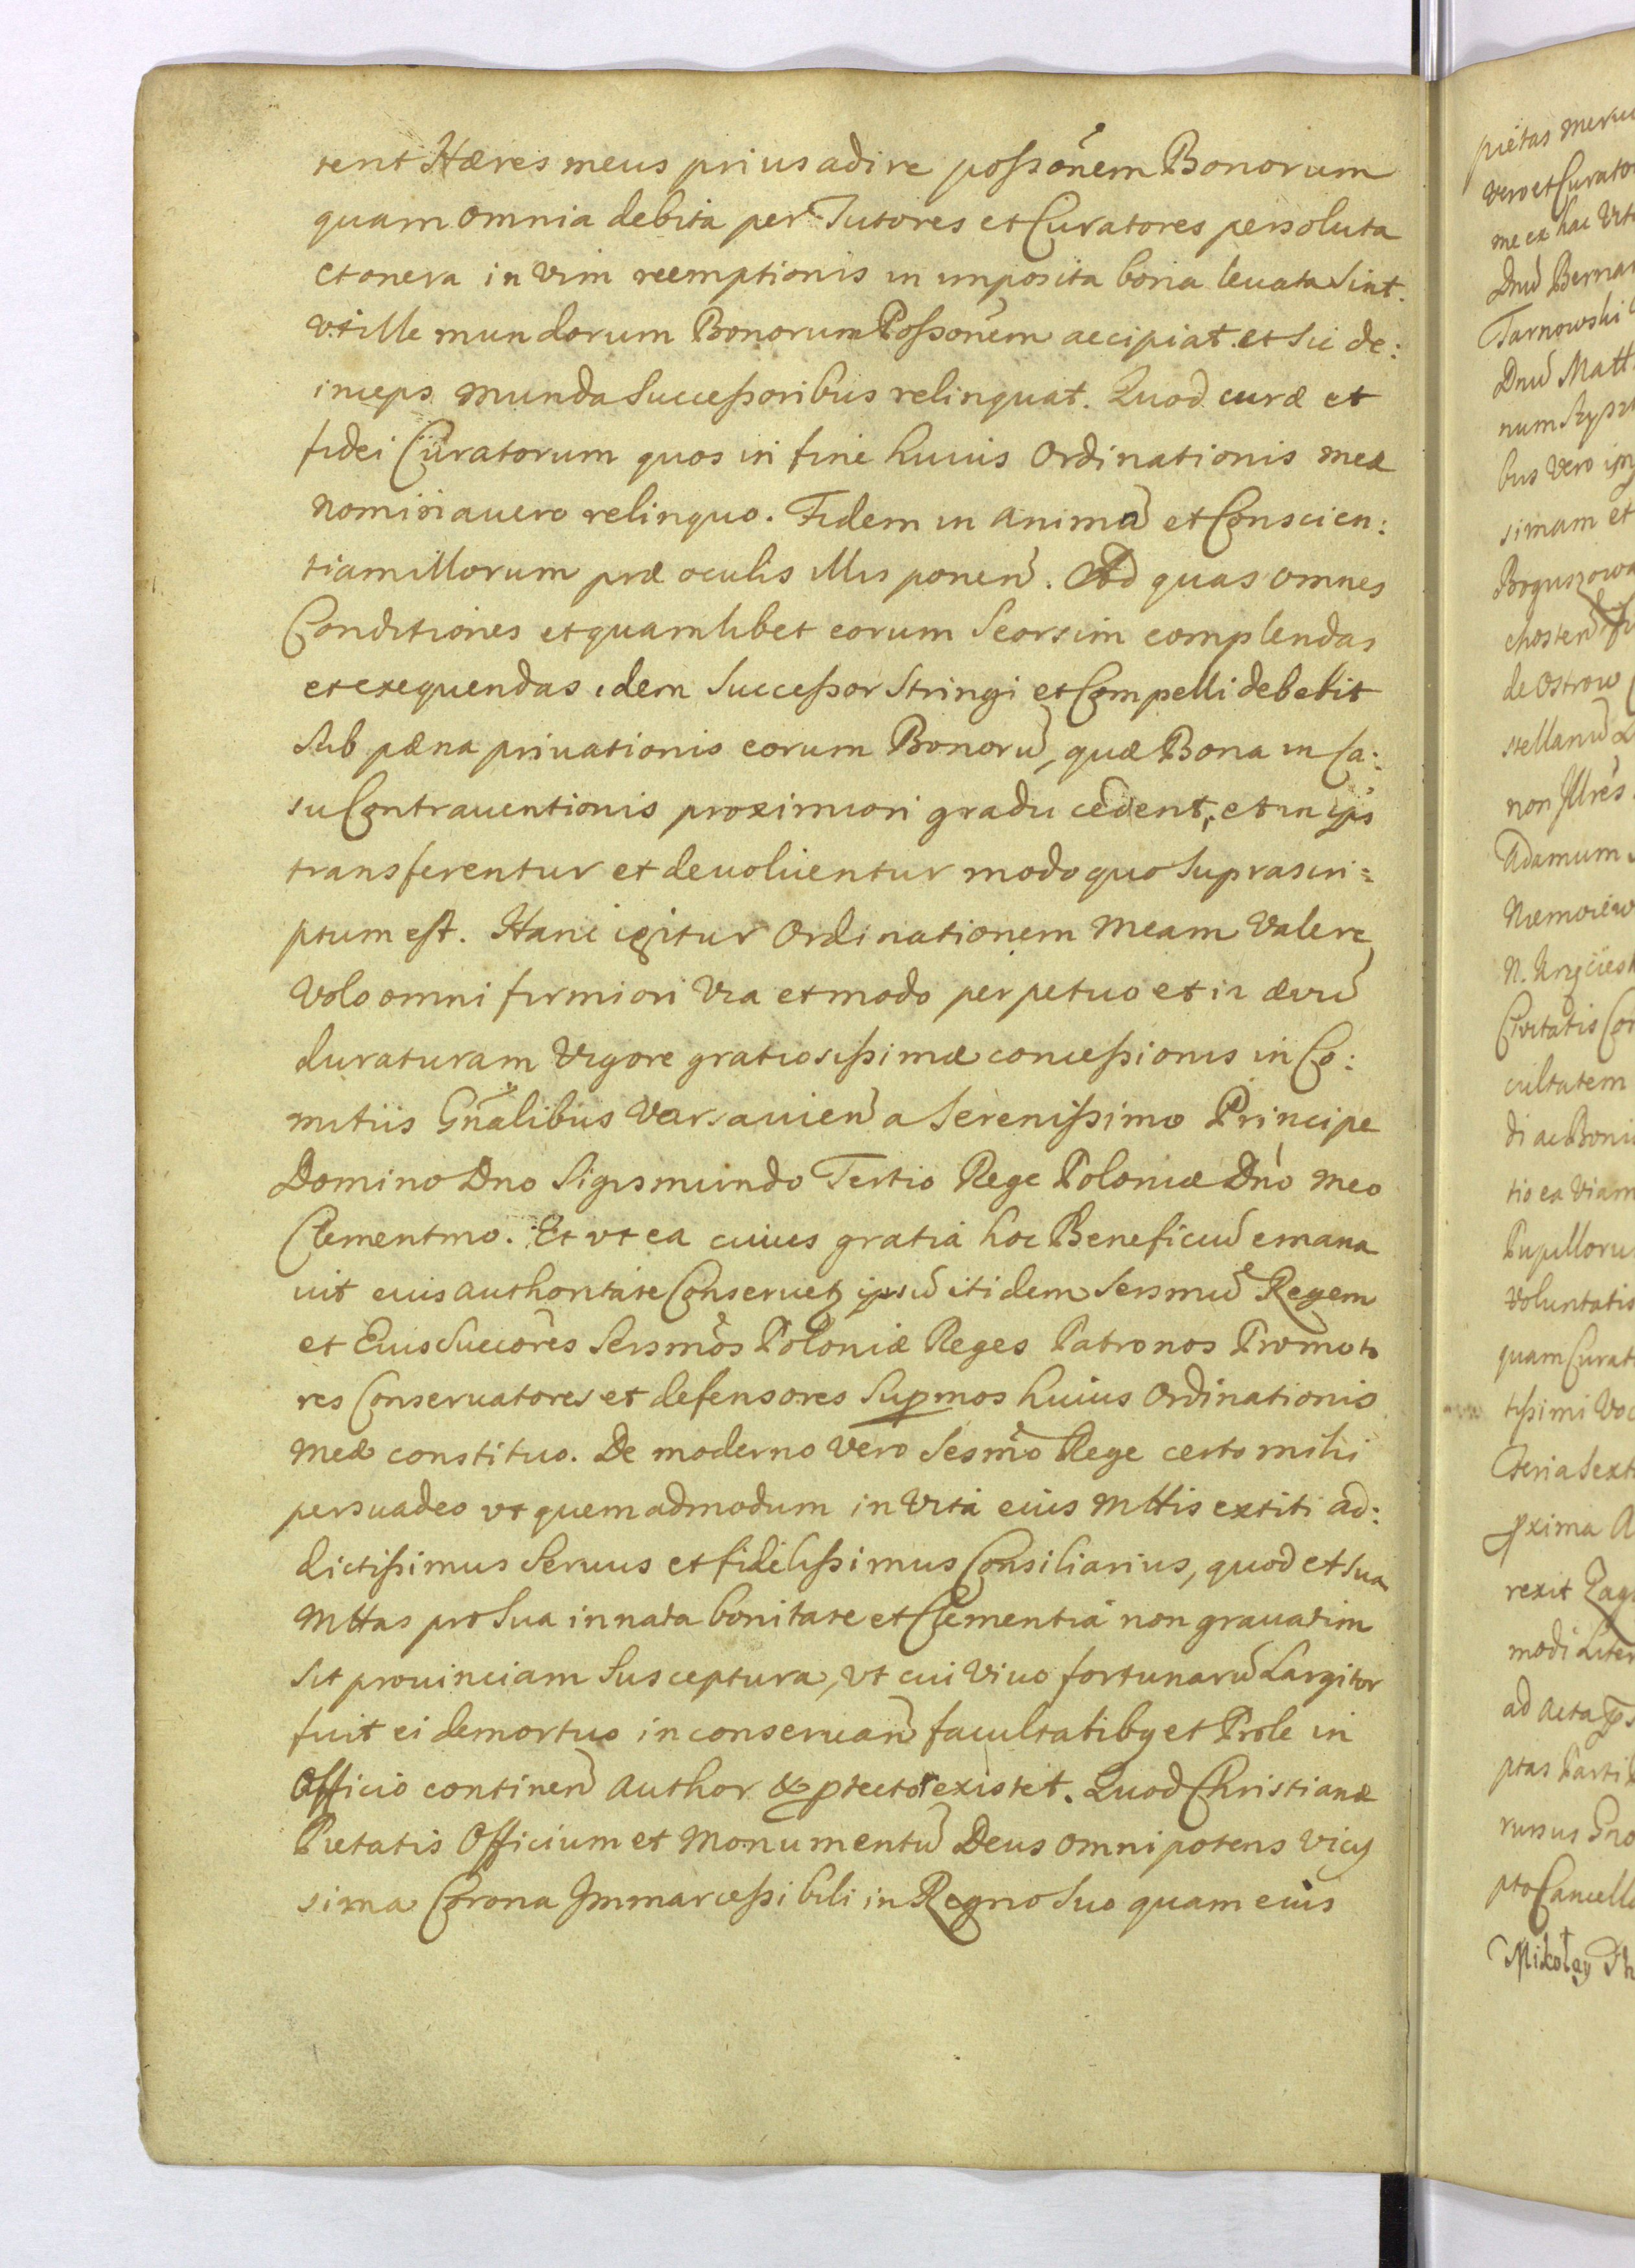 rent Hæres meus prius adire possõnem Bonorum
quam omnia debita per Tutores et Curatores persoluta
et onera in Vim reemptionis in imposita bona leuata Sint.
Vt ille mundorum Bonorum Possonem accipiat. et Sic de:
inceps munda Successoribus relinquat. Quod curæ et
fidei Curatorum quos in fine huius Ordinationis meæ
nominauero relinquo. Fidem in animã et Conscien:
tiam illorum præ oculis illis ponen̄. Ad quas omnes
Conditiones et quamlibet eorum Seorsim complendas
et exequendas idem Successor Stringi et Compelli debebit
Sub pæna priuationis eorum Bonorũ, quæ Bona in Ca:
su Contrauentionis proximiori gradu cedent, et in ip̃s
transferentur et deuoluentur modo quo Suprascri=
ptum est. Hanc igitur Ordinationem meam Valere
Volo omni firmiori Via et modo perpetuo et in æuũ
duraturam Vigore gratiosissimæ concessionis in Co:
mitiis Gnãlibus Varsauien̄ a Serenissimo Principe
Domino Dno Sigismundo Tertio Rege Poloniæ Dno meo
Clementmo. Et vt ea cuius gratia hoc Beneficiũ emana
uit eius authoritate Conseruetʒ ipsũ itidem Sersmũ Regem
et Eius Succores Sersmos Poloniæ Reges Patronos Promoto
res Conseruatores et defensores Supmos huius Ordinationis
meæ constituo. De moderno vero Sesmo Rege certo mihi
persuadeo vt quemadmodum in Vita eius Mttis extiti ad:
dictissimus Seruus et fidelissimus Consiliarius, quod et Sua
Mttas pro Sua innata bonitate et Clementia non grauatim
Sit prouinciam Susceptura, Vt cui Viuo fortunarũ Largitor
fuit ei demortuo in conseruan̄ facultatibꝫ et Prole in
Officio continen̄ author & ptector existet. Quod Christianæ
Pietatis Officium et Monumentũ Deus omnipotens vicis
sima Corona Immarcessibili in Regno Suo quam eius
pietas
vero et Curator
me ex hac
Dnũ
Tarnowski
Dnũ Matt
bus Vero
simam et
de Ostrow
stellanũ
non Illres
Adamum
Ciuitatis
cultatem
di ac
tio ea Viam
Pupilloru
Voluntatis
quam Curat
tissimi
feria Sext
pxima A
rexit
modi Liter
ad Acta
ptas Parti
rursus
pto Cancell
Mikołay